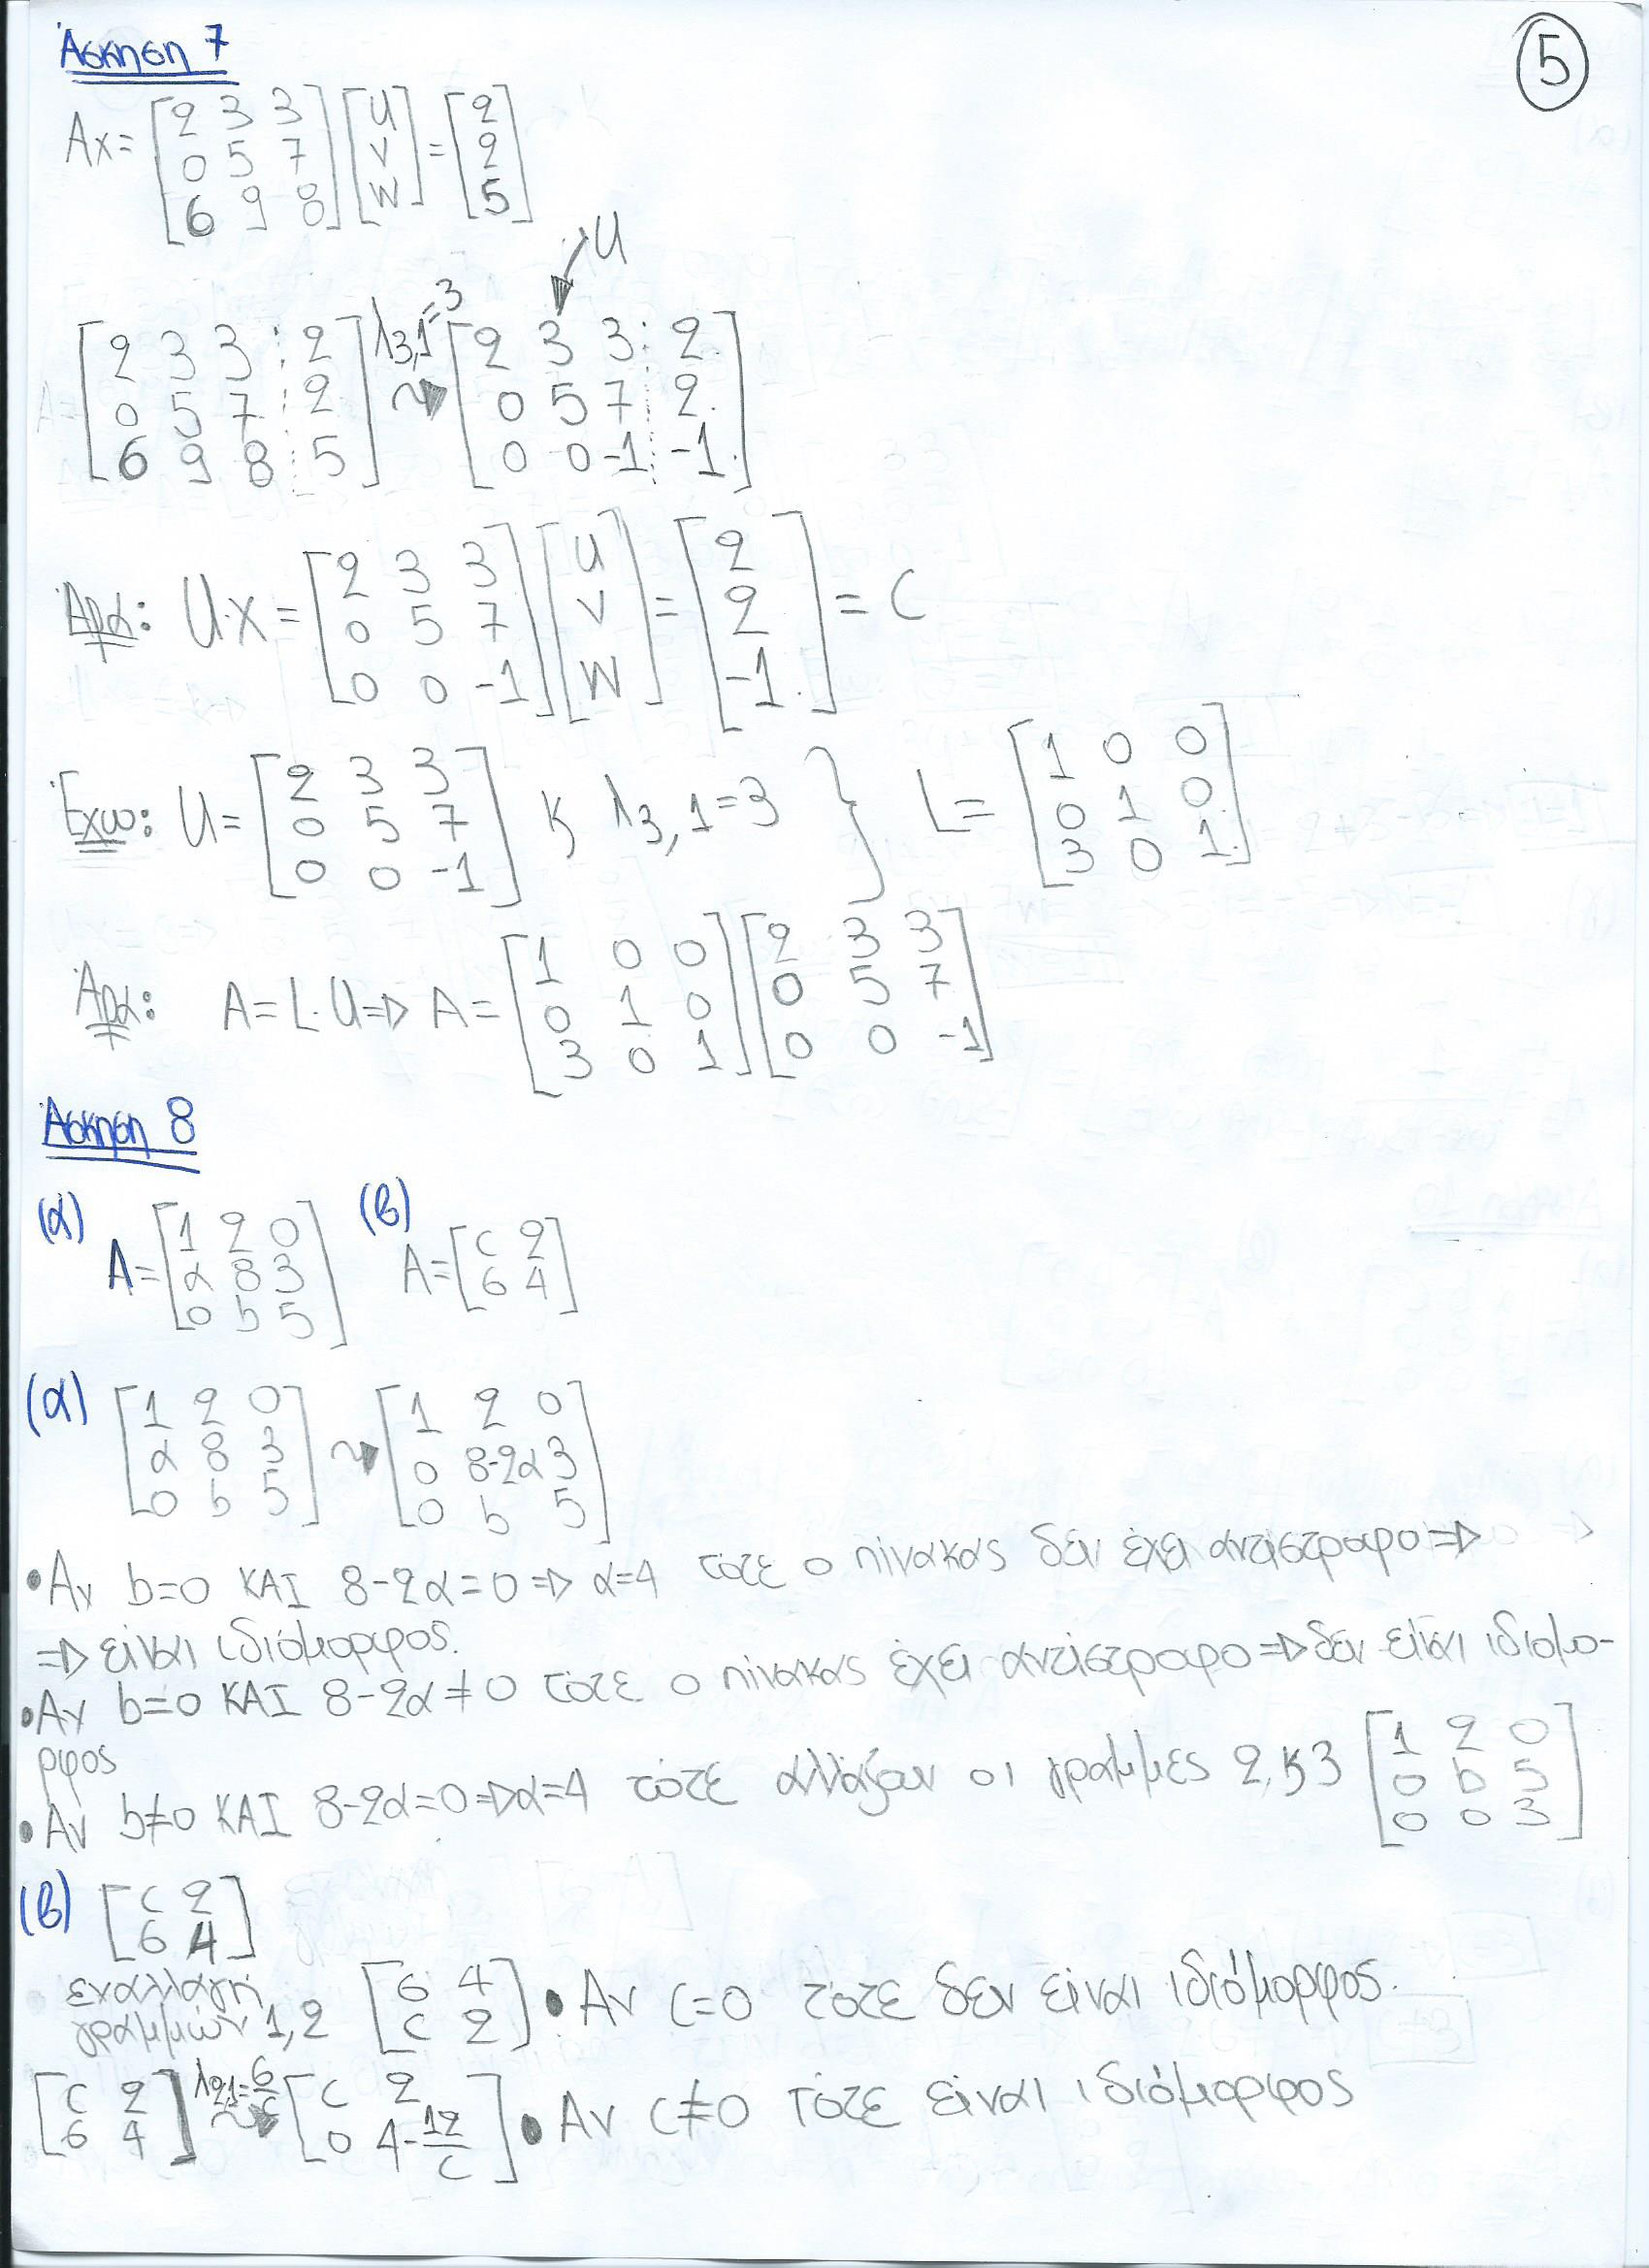 Άσκηση 7
5
Ax = [2 3 3; 0 5 7; 6 9 8] [u; v; w] = [2; 2; 5]
U
[2 3 3 ⋮ 2; 0 5 7 ⋮ 2; 6 9 8 ⋮ 5] λ3,1=3 ~> [2 3 3 ⋮ 2; 0 5 7 ⋮ 2; 0 0 -1 ⋮ -1]
Άρα: U·x = [2 3 3; 0 5 7; 0 0 -1] [u; v; w] = [2; 2; -1] = c
Έχω: U = [2 3 3; 0 5 7; 0 0 -1] ϗ λ3,1=3 } L = [1 0 0; 0 1 0; 3 0 1]
Άρα: A = L·U => A = [1 0 0; 0 1 0; 3 0 1] [2 3 3; 0 5 7; 0 0 -1]
Άσκηση 8
(α) A = [1 2 0; α 8 3; 0 b 5] (β) A = [c 2; 6 4]
(α) [1 2 0; α 8 3; 0 b 5] ~> [1 2 0; 0 8-2α 3; 0 b 5]
• Αν b=0 ΚΑΙ 8-2α=0 => α=4 τότε ο πίνακας δεν έχει αντίστροφο =>
=> είναι ιδιόμορφος.
• Αν b=0 ΚΑΙ 8-2α≠0 τότε ο πίνακας έχει αντίστροφο => δεν είναι ιδιόμο-
ρφος
• Αν b≠0 ΚΑΙ 8-2α=0 => α=4 τότε αλλάζουν οι γραμμές 2, ϗ 3 [1 2 0; 0 b 5; 0 0 3]
(β) [c 2; 6 4]
εναλλαγή
γραμμών 1,2 [6 4; c 2] • Αν c=0 τότε δεν είναι ιδιόμορφος.
[c 2; 6 4] λ2,1=6/c ~> [c 2; 0 4-12/c] • Αν c≠0 τότε είναι ιδιόμορφος